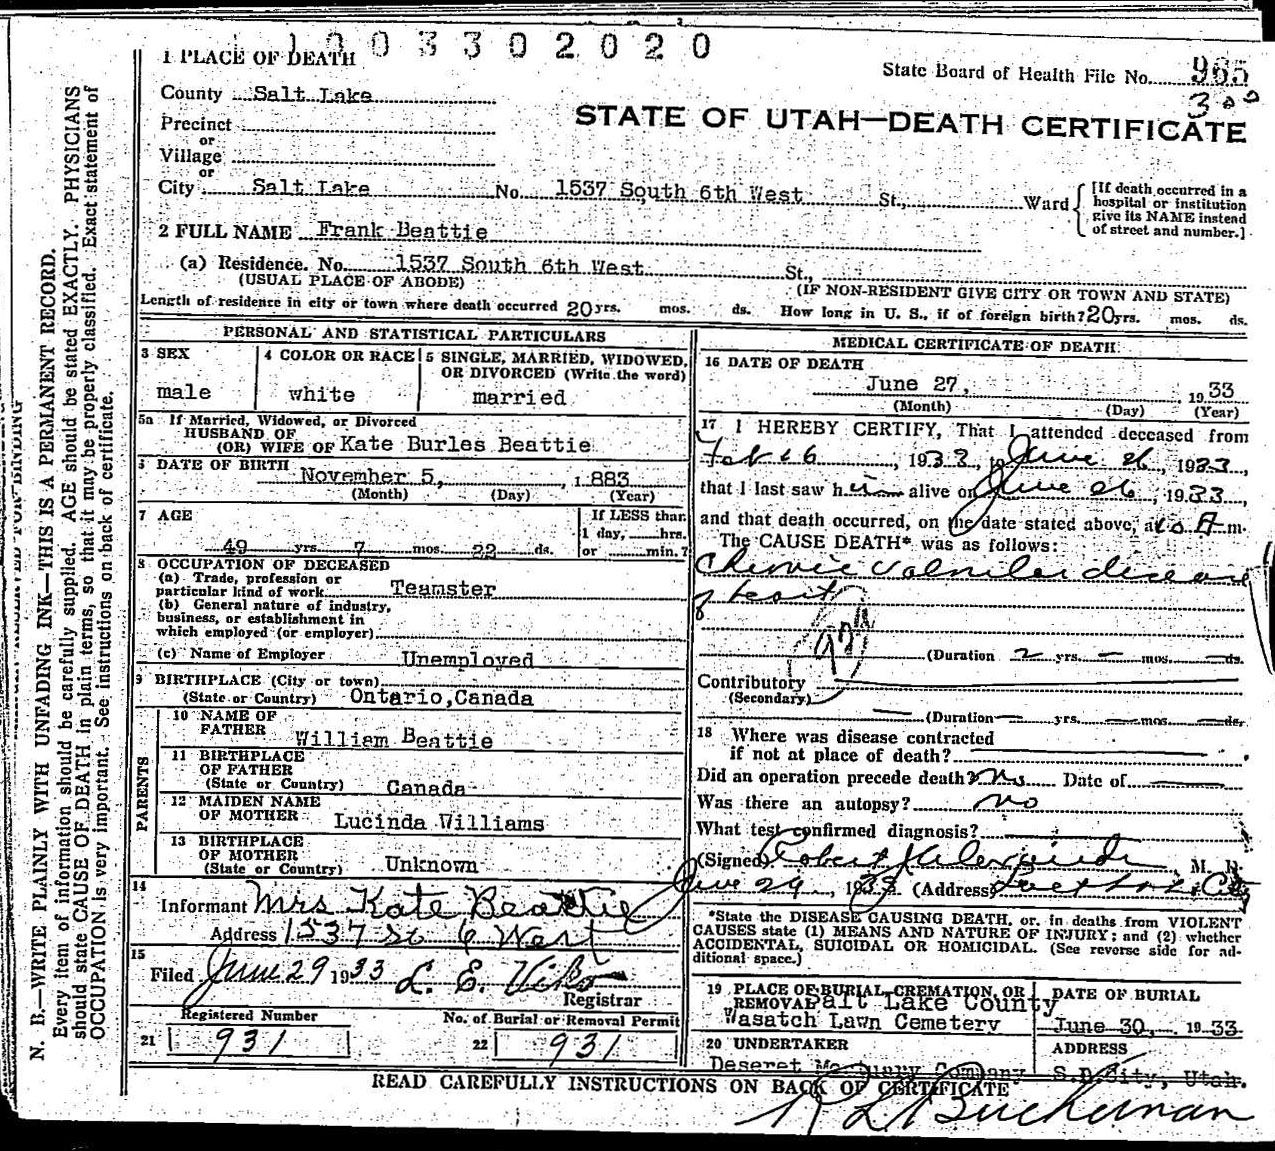 1003302020
1 PLACE OF DEATH
State Board of Health File No. 965
300
County Salt Lake
STATE OF UTAH—DEATH CERTIFICATE
Precinct
or
Village
or
City Salt Lake No. 1537 South 6th West St., Ward
[If death occurred in a
hospital or institution
give its NAME instead
of street and number.]
2 FULL NAME Frank Beattie
(a) Residence. No. 1537 South 6th West St.,
(USUAL PLACE OF ABODE) (IF NON-RESIDENT GIVE CITY OR TOWN AND STATE)
Length of residence in city or town where death occurred 20 yrs. mos. ds. How long in U. S., if of foreign birth? 20 yrs. mos. ds.
PERSONAL AND STATISTICAL PARTICULARS
3 SEX
male
4 COLOR OR RACE
white
5 SINGLE, MARRIED, WIDOWED,
OR DIVORCED (Write the word)
married
5a If Married, Widowed, or Divorced
HUSBAND OF
(OR) WIFE OF Kate Burles Beattie
6 DATE OF BIRTH November 5, 1883
(Month) (Day) (Year)
7 AGE
49 yrs. 7 mos. 22 ds.
If LESS than
1 day, hrs.
or min.?
8 OCCUPATION OF DECEASED
(a) Trade, profession or
particular kind of work Teamster
(b) General nature of industry,
business, or establishment in
which employed (or employer)
(c) Name of Employer Unemployed
9 BIRTHPLACE (City or town)
(State or Country) Ontario, Canada
PARENTS
10 NAME OF
FATHER William Beattie
11 BIRTHPLACE
OF FATHER
(State or Country) Canada
12 MAIDEN NAME
OF MOTHER Lucinda Williams
13 BIRTHPLACE
OF MOTHER
(State or Country) Unknown
14
Informant Mrs Kate Beattie
Address 1537 So 6 West
15
Filed June 29 1933 L. E. Viko
Registrar
Registered Number
21 931
No. of Burial or Removal Permit
22 931
MEDICAL CERTIFICATE OF DEATH
16 DATE OF DEATH
June 27, 1933
(Month) (Day) (Year)
17 I HEREBY CERTIFY, That I attended deceased from
1933, to June 26, 1933,
that I last saw him alive on June 26, 1933,
and that death occurred, on the date stated above, at A m.
The CAUSE DEATH* was as follows:
Chronic Valvular disease
of heart
(Duration 2 yrs. — mos. — ds.
Contributory
(Secondary)
(Duration — yrs. — mos. — ds.
18 Where was disease contracted
if not at place of death?
Did an operation precede death? No Date of
Was there an autopsy? no
What test confirmed diagnosis?
(Signed) Robert M. D.
June 29, 1933 (Address) Salt Lake City
*State the DISEASE CAUSING DEATH, or, in deaths from VIOLENT
CAUSES state (1) MEANS AND NATURE OF INJURY; and (2) whether
ACCIDENTAL, SUICIDAL OR HOMICIDAL. (See reverse side for ad-
ditional space.)
19 PLACE OF BURIAL, CREMATION, OR
REMOVAL Salt Lake County
Wasatch Lawn Cemetery
DATE OF BURIAL
June 30, 1933
20 UNDERTAKER
Deseret Mortuary Company
ADDRESS
S.L.City, Utah.
READ CAREFULLY INSTRUCTIONS ON BACK OF CERTIFICATE
N. B.—WRITE PLAINLY WITH UNFADING INK—THIS IS A PERMANENT RECORD.
Every item of information should be carefully supplied. AGE should be stated EXACTLY. PHYSICIANS
should state CAUSE OF DEATH in plain terms, so that it may be properly classified. Exact statement of
OCCUPATION is very important. See instructions on back of certificate.